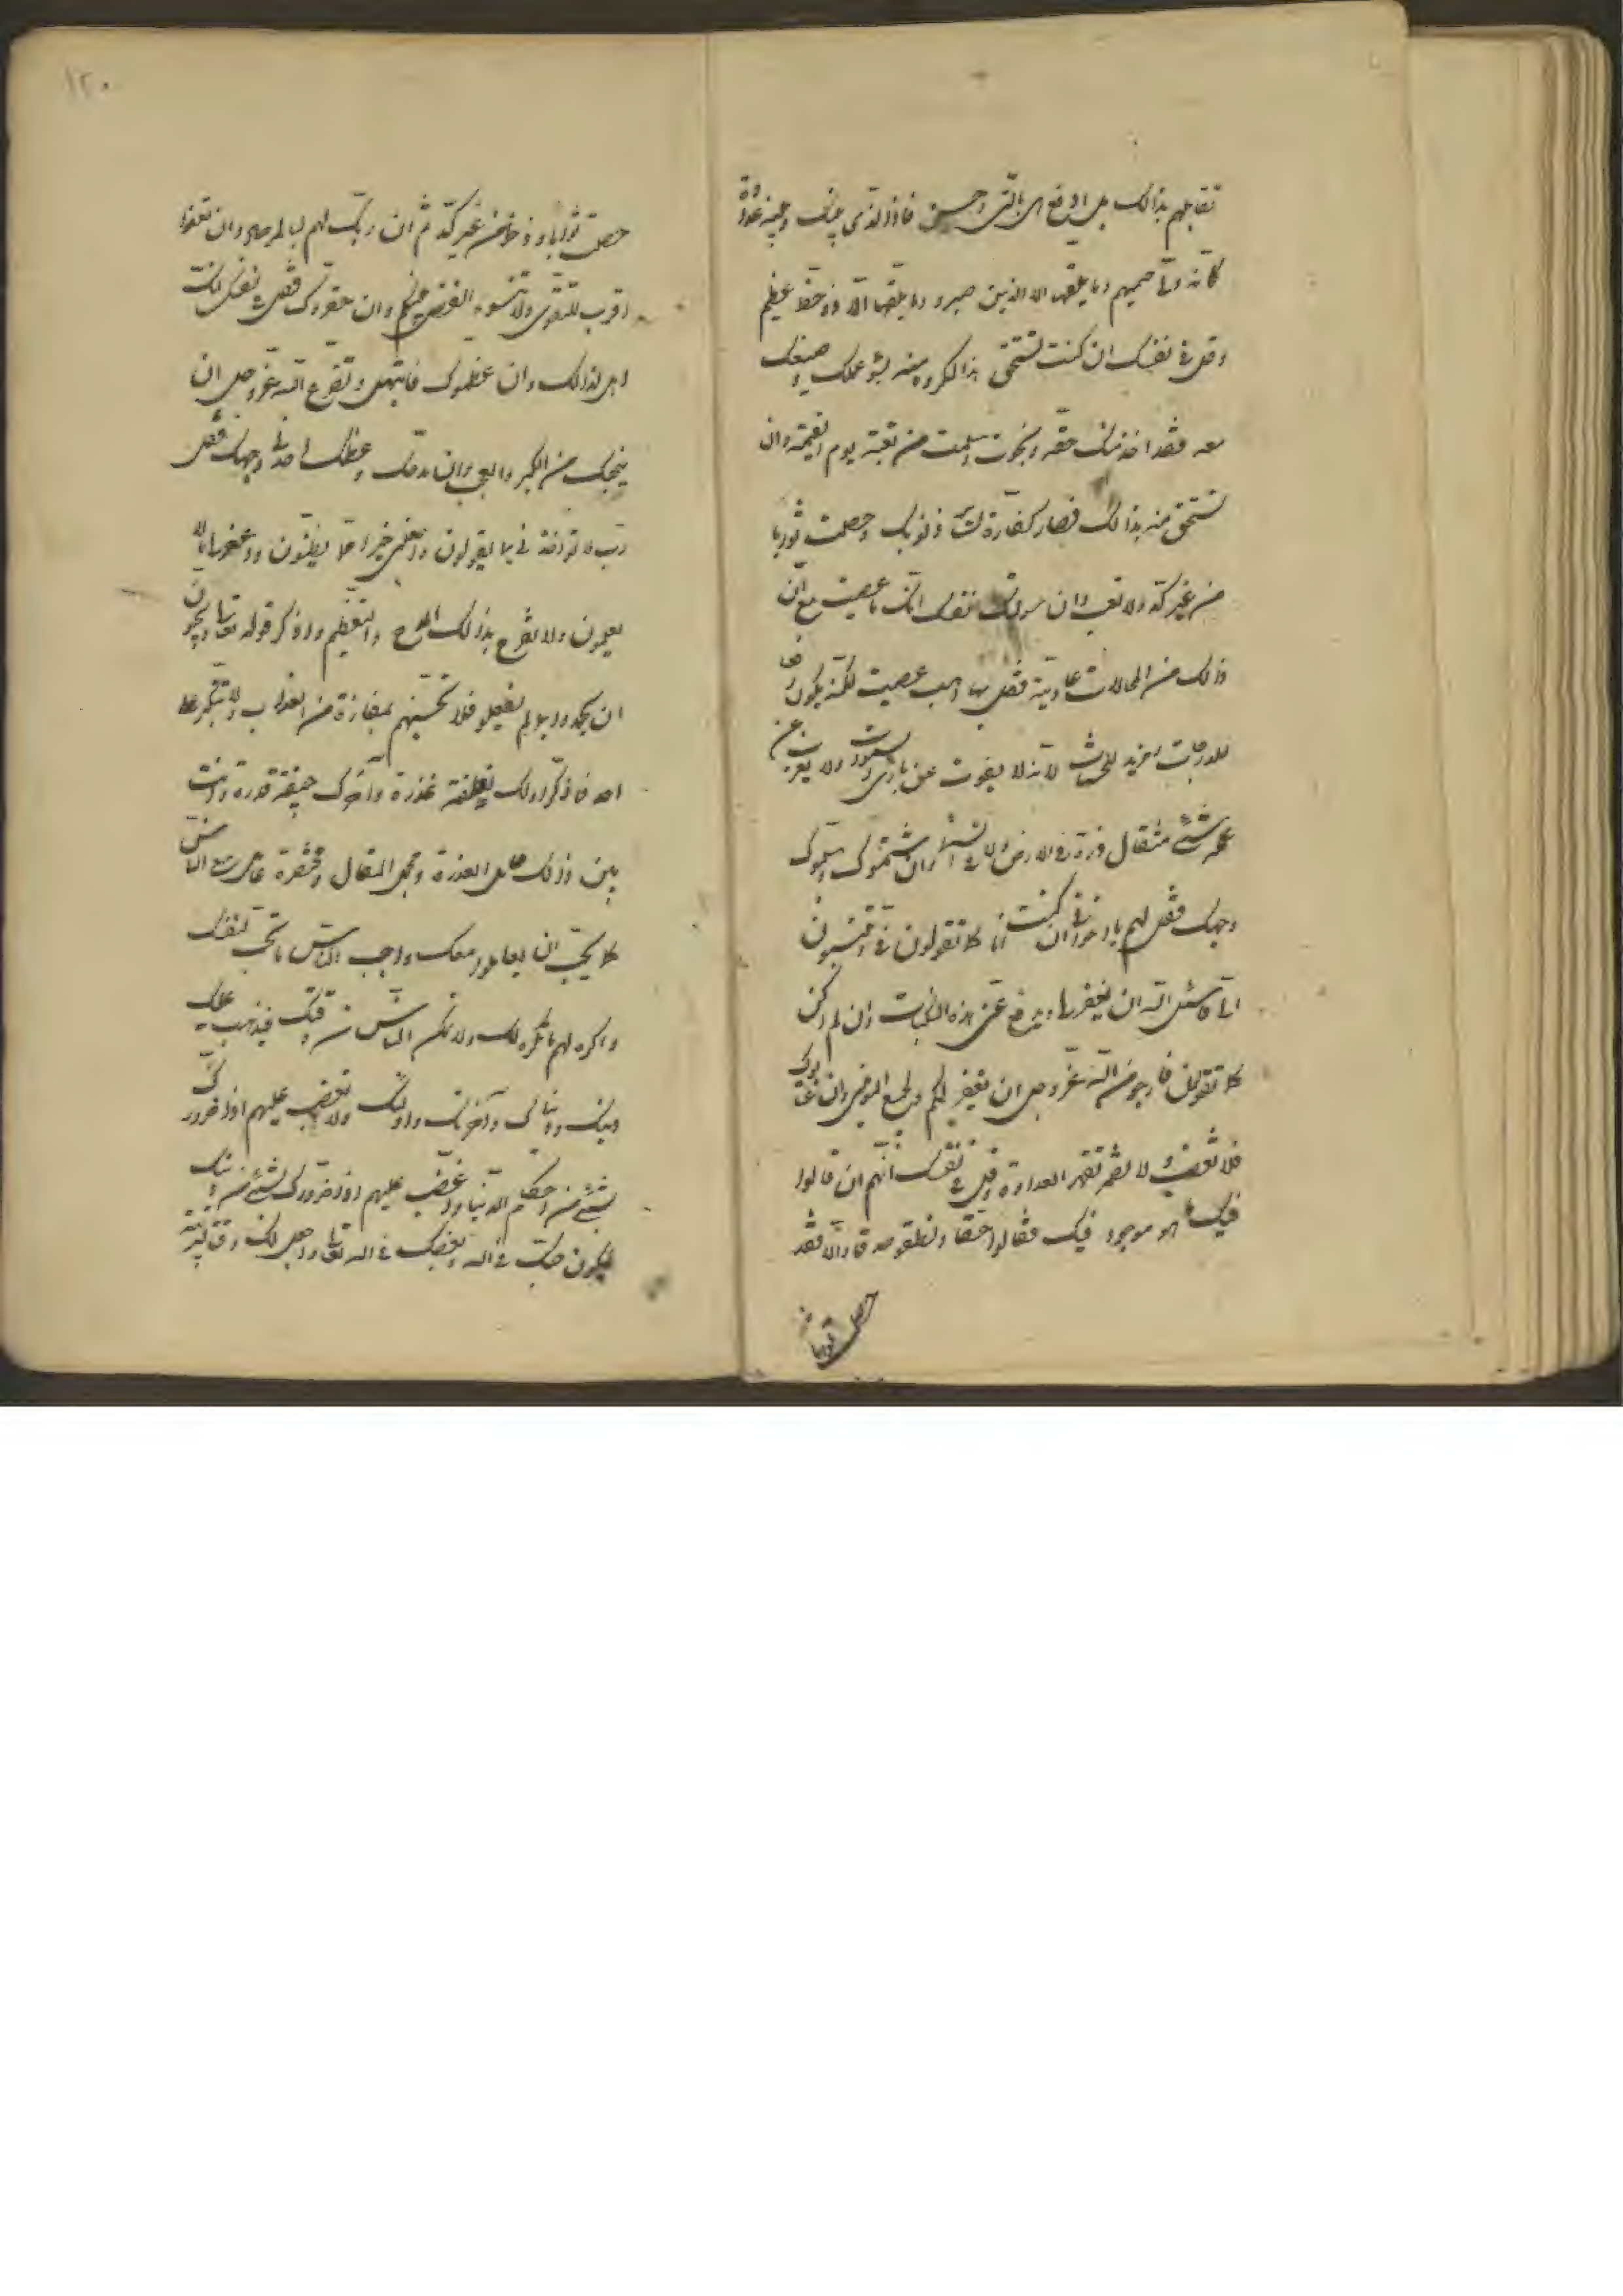 تقابلهم بذالك بل ادفع بالتى احسن فاذا الذى بينك وبينه عداوة
كانه ولى حميم وما يلقيها الا الذين صبروا وما يلقيها الا ذو حظ عظيم
وقل فى نفسك ان كنت تستحق هذا المكروه منه بسوء عملك وصنعك
معه فقد اخذ منك حقه ونجوت وسلمت من تبعته يوم القيمة وان
تستحق منه بذالك فصار كفارة لسائر ذنوبك وحصلت ثوابا
من غير كد ولا تعب وان سولت نفسك انك ما عصيت مع ان
ذلك من المحالات عادية فقل هب ما عصيت لكنه يكون رفعا
للدرجات ومزيد للحسنات لانه لا يفوت عن بارئ السموات ولا يعزب عن
علمه شئ مثقال ذرة فى الارض ولا فى السماء وان شتموك وسبوك
وجهك فقل لهم يا اخوانى ان كنت انا كلا تقولون فى وتنسبون
الى فاسئل الله ان يغفرها ويدفع عنى هذه السيئات وان لم اكن
كلا تقولون فارجو من الله عز وجل ان يغفر لكم ولجميع المؤمنين وان عادوك
فلا تغضب ولا تضمر لهم العداوة وقل فى نفسك انهم ان قالوا
فيك ما هو موجود فيك فقالوا حقا ونطقوا صدقا والا فقد
حصل ثوابا
١٢٠
حصلت ثوابا وذخرا من غير كد ثم ان ربك لهم لبالمرصاد وان تعفوا
اقرب للتقوى ولا تنسوا الفضل بينكم وان حقروك فقل فى نفسك انك
اهل لذالك وان عظموك فابتهل وتضرع الى الله عز وجل ان
ينجيك من الكبر والعجب وان مدحك وعظمك احد فى وجهك فقل
رب لا تؤاخذنى بما يقولون واجعلنى خيرا مما يظنون واغفر لى ما لا
يعلمون ولا تفرح بذالك المدح والتعظيم واذكر قوله تعالى ويحبون
ان يحمدوا بما لم يفعلوا فلا تحسبنهم بمفازة من العذاب ولا تتكبر على
احد فاذكر اولك نطفة قذرة وآخرك جيفة قذرة وانت
بين ذلك حامل العذرة
كلا يحب ان يعاملوا معك واحب للناس ما تحب لنفسك
واكره لهم ما تكره لك ولا تكن
دينك ودنياك وآخرتك واولك ولا تغضب عليهم اذا ضروك
بشئ من احكام الدنيا واغضب عليهم اذا ضروك بشئ من دينك
ليكون حبك فى الله وبغضك فى الله تعالى واجعل لك